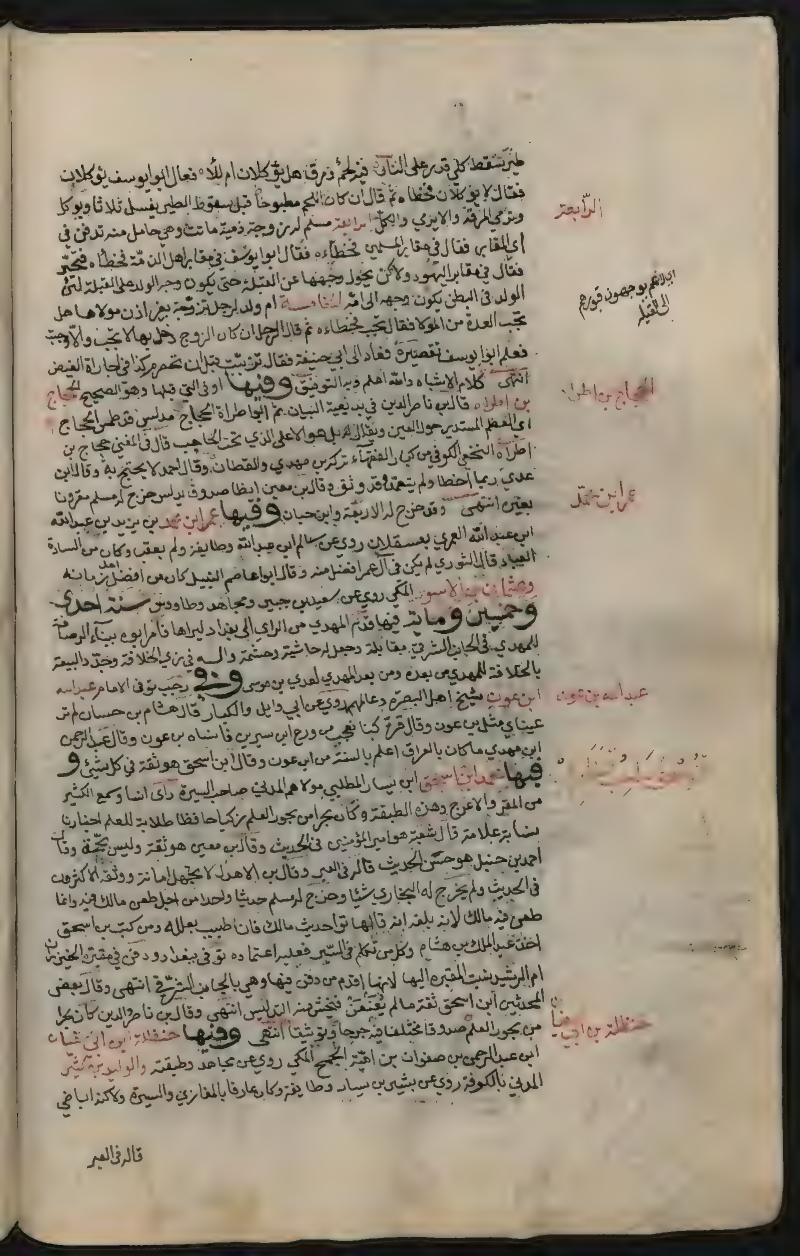 طير سقط في قدر على النار فيه لحم ومرق هل يؤكلان ام لا فقال ابو يوسف يؤكلان
فقال لا يؤكلان فخطاه ثم قال ان كان اللحم مطبوخا قبل سقوط الطير يغسل ثلاثا ويؤكل
وترمي المرقة والا يرمي الكل الرابعة مسلم له زوجة ذمية ماتت وهي حامل منه تدفن في
اي المقابر فقال في مقابر المسلمين فخطاءه فقال ابو يوسف في مقابر اهل الذمة فخطاه فتحير
فقال في مقابر اليهود ولاكن يحول وجهها عن القبلة حتى يكون وجه الولد على القبلة لان
الولد في البطن يكون وجهه الى امه الخامسة ام ولد لرجل تزوجة بغير اذن مولاها هل
تجب العدة من المولا فقال تجب فخطاءه ثم قال الرجل ان كان الزوج دخل بها لا تجب والا وجبت
فعلم ابو يوسف تقصيره فعاد الى ابي حنيفة فقال تزببت قبل ان تحصرم كذا في اجارة الفيض
انتهى كلام الاشباه والله اعلم وبه التوفيق وفيها او في التي قبلها وهو الصحيح الحجاج
بن ارطاه قال بن ناصر الدين في بديعية البيان ثم ابو ارطاة الحجاج مدلس
اي العظم المستدير حول العين ويقال له بل هو الاعلى الذي تحت الحاجب قال في المغني حجاج بن
ارطاه النخعي الكوفي من كبار الفقهاء تركه بن مهدي والقطان وقال احمد لا يحتج به وقال ابن
عدي ربما اخطا ولم يتعمد وقد وثق وقال بن معين ايظا صدوق يدلس خرج له مسلم مقرونا
بغيره انتهى وقد خرج له الاربعة وابن حبان وفيها عمر ابن محمد بن يزيد بن عبد الله
ابن عبد الله العمري بعسقلان روي عن سالم ابن عبد الله وطايفة ولم يعقب وكان من السادة
العباد قال الثوري لم يكن في آل عمر افضل منه وقال ابو عاصم النبيل كان من افضل اهل زمانه
وعثمان بن الاسود المكي روي عن سعيد بن جبير ومجاهد وطاووس سنة احدى
وخمسين وماتة فيها قدم المهدي من الراي الى بغداد ليراها فامر ابوه ببناء الرصافة
للمهدي في الجانب الشرقي مقابلة وجعل له حاشية وحشمة في زي الخلافة وجدد البيعة
بالخلافة للمهدي من بعده ومن بعد المهدي لعيسى بن موسى وفي رجب توفي الامام عبد الله
ابن عون شيخ اهل البصرة وعالمهم روي عن ابي وايل والكبار قال هشام بن حسان لم تر
عيناي مثل بن عون وقال قرة كنا نعجب من ورع ابن سيرين فانساناه بن عون وقال عبد الرحمن
ابن مهدي ما كان بالعراق اعلم بالسنة من ابن عون وقال ابن اسحق هو ثقة في كل شيئ و
فيها محمد ابن اسحق ابن يسار المطلبي مولاهم المدني صاحب السيرة راى انسا وسمع الكثير
من المقبري والاعرج وهذه الطبقة وكان بحرا من بحور العلم زكيا حافظا طلابة للعلم اخباريا
نسابة علامة قال شعبة هو امير المؤمنين في الحديث وقال بن معين هو ثقة وليس بحجة وقال
احمد بن حنبل هو حسن الحديث قاله في العبر وقال بن الاهدل لا تجهل امانته ووثقه الاكثرون
في الحديث ولم يخرج له البخاري شيئا وخرج له مسلم حديثا واحدا من اجل طعن مالك فيه وانما
طعن فيه مالك لانه بلغه انه قال هاتوا حديث مالك فانا طبيب بعلله ومن كتب بن اسحق
اخذ عبد الملك بن هشام وكل من تكلم في السير فعليه اعتماده توفي ببغداد ودفن في مقبرة الخيزران
ام الرشيد نسبت المقبرة اليها لانها اقدم من دفن فيها وهي بالجانب الشرقي انتهى وقال بعض
المحدثين ابن اسحق ثقة ما لم يعنعن فيخشى منه التدليس انتهى وقال بن ناصر الدين كان بحرا
من بحور العلم صدوقا مختلفا فيه جرحا وتوثيقا انتهى وفيها حنظلة ابن ابي سفيان
ابن عبد الرحمن بن صفوان بن امية الجمحي المكي روي عن مجاهد وطبقته والوليد بن كثير
المدني بالكوفة روي عن بشير بن يسار وطايفة وكان عارفا بالمغازي والسيرة ولاكنه اباضي
قاله في العبر
الرابعة
اي لانهم يوجهون قبورهم
الى القبله
الحجاج بن ارطاه
عمر ابن محمد
عبد الله بن عون
حنظلة بن ابي سفيان